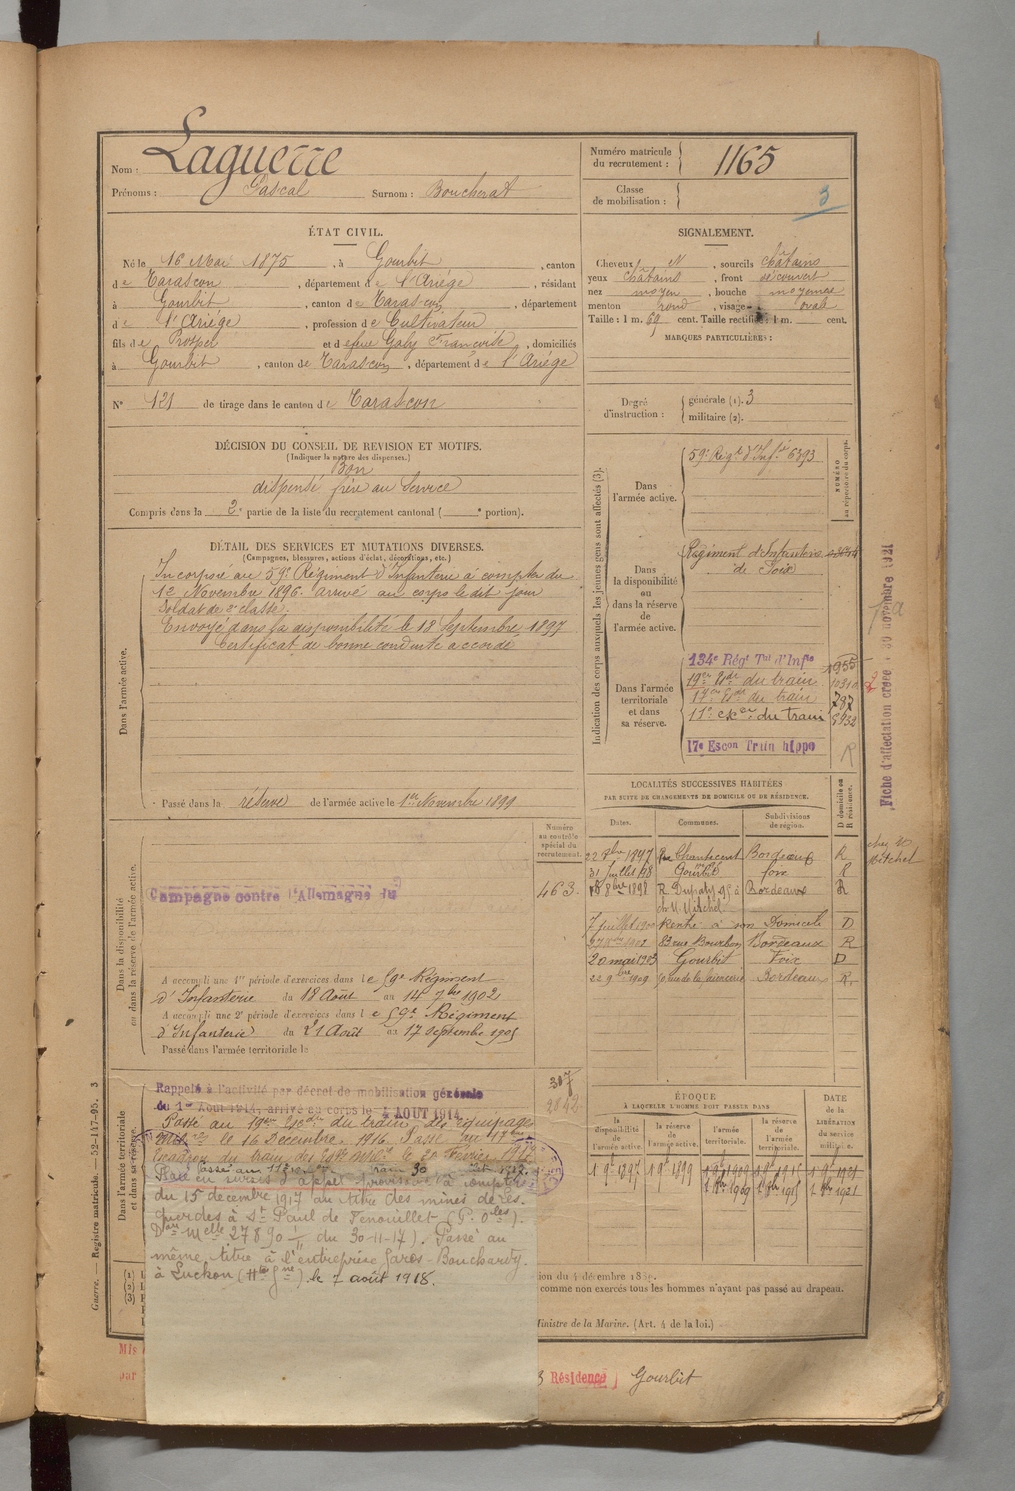 Nom : Laguerre
Prénoms : Pascal Surnom : Boucherat
Numéro matricule du recrutement : 1165
Classe de mobilisation :
3
ÉTAT CIVIL.
Né le 16 Mai 1875, à Gourbit, canton
de Tarascon, département de l'Ariége, résidant
à Gourbit, canton de Tarascon, département
de l'Ariége, profession de Cultivateur
fils de Prosper et de feue Gaby Françoise, domiciliés
à Gourbit, canton de Tarascon, département de l'Ariége
N° 121 de tirage dans le canton de Tarascon
SIGNALEMENT.
Cheveux N, sourcils châtains
yeux châtains, front découvert
nez moyen, bouche moyenne
menton rond, visage ovale
Taille : 1 m. 69 cent. Taille rectifiée : 1 m. cent.
MARQUES PARTICULIÈRES :
Degré d'instruction : générale (1). 3
militaire (2).
DÉCISION DU CONSEIL DE REVISION ET MOTIFS.
(Indiquer la nature des dispenses.)
Bon
dispensé frère au Service
Compris dans la 2e partie de la liste du recrutement cantonal ( e portion).
DÉTAIL DES SERVICES ET MUTATIONS DIVERSES.
(Campagnes, blessures, actions d'éclat, décorations, etc.)
Dans l'armée active.
Incorporé au 59e Régiment d'Infanterie à compter du
12 Novembre 1896. arrivé au corps le dit jour
Soldat de 2e classe.
Envoyé dans la disponibilité le 18 Septembre 1897
Certificat de bonne conduite accordé
Passé dans la réserve de l'armée active le 1er Novembre 1899
Indication des corps auxquels les jeunes gens sont affectés (3).
NUMÉRO au répertoire du corps.
Dans l'armée active.
59e Régt d'Infie 6393
Dans la disponibilité ou dans la réserve de l'armée active.
Régiment d'Infanterie
de Foix
Dans l'armée territoriale et dans sa réserve.
134e Régt Tal d'Infie 1955
19em Edr du train
17em Edr du train 787
17e Escon Train hippo R
Fiche d'affectation créée 30 novembre 1921
LOCALITÉS SUCCESSIVES HABITÉES
PAR SUITE DE CHANGEMENTS DE DOMICILE OU DE RÉSIDENCE.
D domicile ou R résidence.
Dates. Communes. Subdivisions de région.
22 1897 Rue Chantecrit Bordeaux R
31 juillet 98 Gourbit foix R
8bre 1898 R. Dupaty 95 à Bordeaux R
ch. M. Mitchel
chez M. Mitchel
7 juillet 1900 Rentré à son Domicile D
1902 83 rue Bourbon Bordeaux R
20 mai 1903 Gourbit Foix D
22 9bre 1909 Bordeaux R.
Dans la disponibilité ou dans la réserve de l'armée active.
Numéro au contrôle spécial du recrutement.
463.
Campagne contre l'Allemagne du
A accompli une 1re période d'exercices dans le 59e Régiment
d'Infanterie du 18 Août au 14 7bre 1902
A accompli une 2e période d'exercices dans le 59e Régiment
d'Infanterie du 21 Août au 17 septembre 1905
Passé dans l'armée territoriale le
Dans l'armée territoriale et dans sa réserve.
307
2842
Rappelé à l'activité par décret de mobilisation générale
du 1er Août 1914, arrivé au corps le 4 AOUT 1914
Passé au 19em Escdr du train des équipages
le 16 Décembre 1916. Passé au 17em
Escadron du train des Eqts Mres le 20 Février 1917
Placé en sursis d'appel provisoire à compter
du 15 décembre 1917 au titre des mines de les-
querdes à St Paul de Fenouillet (P. Oles).
Don Melle 27890 du 30-11-17). Passé au
même titre à l'entreprise Garos-Bouchardy
à Luchon (Hte Gne) le 7 août 1918.
ÉPOQUE
À LAQUELLE L'HOMME DOIT PASSER DANS
DATE de la LIBÉRATION du service militaire.
la disponibilité de l'armée active. la réserve de l'armée active. l'armée territoriale. la réserve de l'armée territoriale.
1 9e 1897 1 9e 1899 1 9e 1909 1 9e 1915 1 9e 1921
1 8bre 1909 1 8bre 1915 1 8bre 1921
Guerre. — Registre matricule. — 52-147-95. 3
comme non exercés tous les hommes n'ayant pas passé au drapeau.
Ministre de la Marine. (Art. 4 de la loi.)
Mis
par
Résidence Gourbit